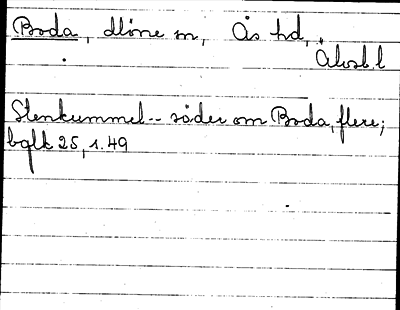 Boda, dlöne sn, Ås hd,
Älvsb l
Stenkummel -- söder om Boda, flere;
bglk 25, s. 49